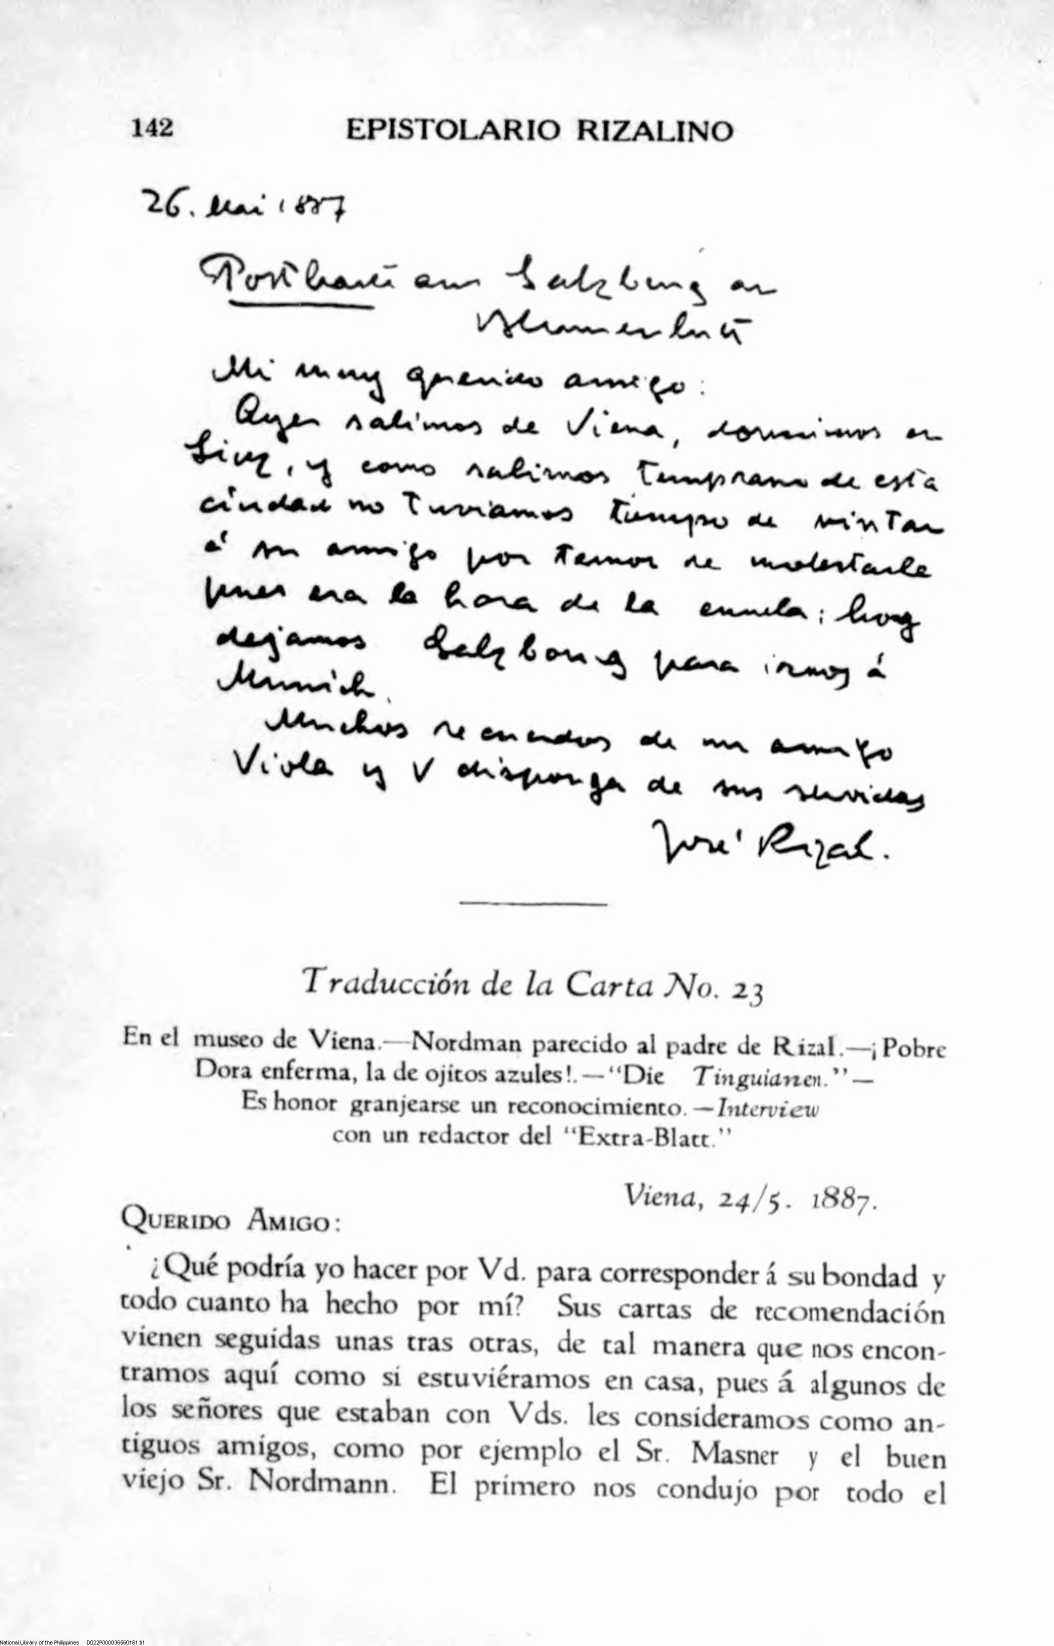 142 EPISTOLARIO RIZALINO
26. Mai 1887
Postkarte aus Salzburg an
Blumentritt
Mi muy querido amigo:
Ayer salimos de Viena, dormimos en
Linz, y como salimos temprano de esta
ciudad no tuvimos tiempo de visitar
á su amigo por temor de molestarle
pues era la hora de la escuela; hoy
dejamos Salzbourg para irnos á
Munich.
Muchos recuerdos de mi amigo
Viola y V disponga de sus servidores
José Rizal.
Traducción de la Carta No. 23
En el museo de Viena.—Nordman parecido al padre de Rizal.—¡Pobre
Dora enferma, la de ojitos azules!.—“Die Tinguianen.”—
Es honor granjearse un reconocimiento.—Interview
con un redactor del “Extra-Blatt.”
Viena, 24/5. 1887.
QUERIDO AMIGO:
¿Qué podría yo hacer por Vd. para corresponder á su bondad y
todo cuanto ha hecho por mí? Sus cartas de recomendación
vienen seguidas unas tras otras, de tal manera que nos encon-
tramos aquí como si estuviéramos en casa, pues á algunos de
los señores que estaban con Vds. les consideramos como an-
tiguos amigos, como por ejemplo el Sr. Masner y el buen
viejo Sr. Nordmann. El primero nos condujo por todo el
National Library of the Philippines